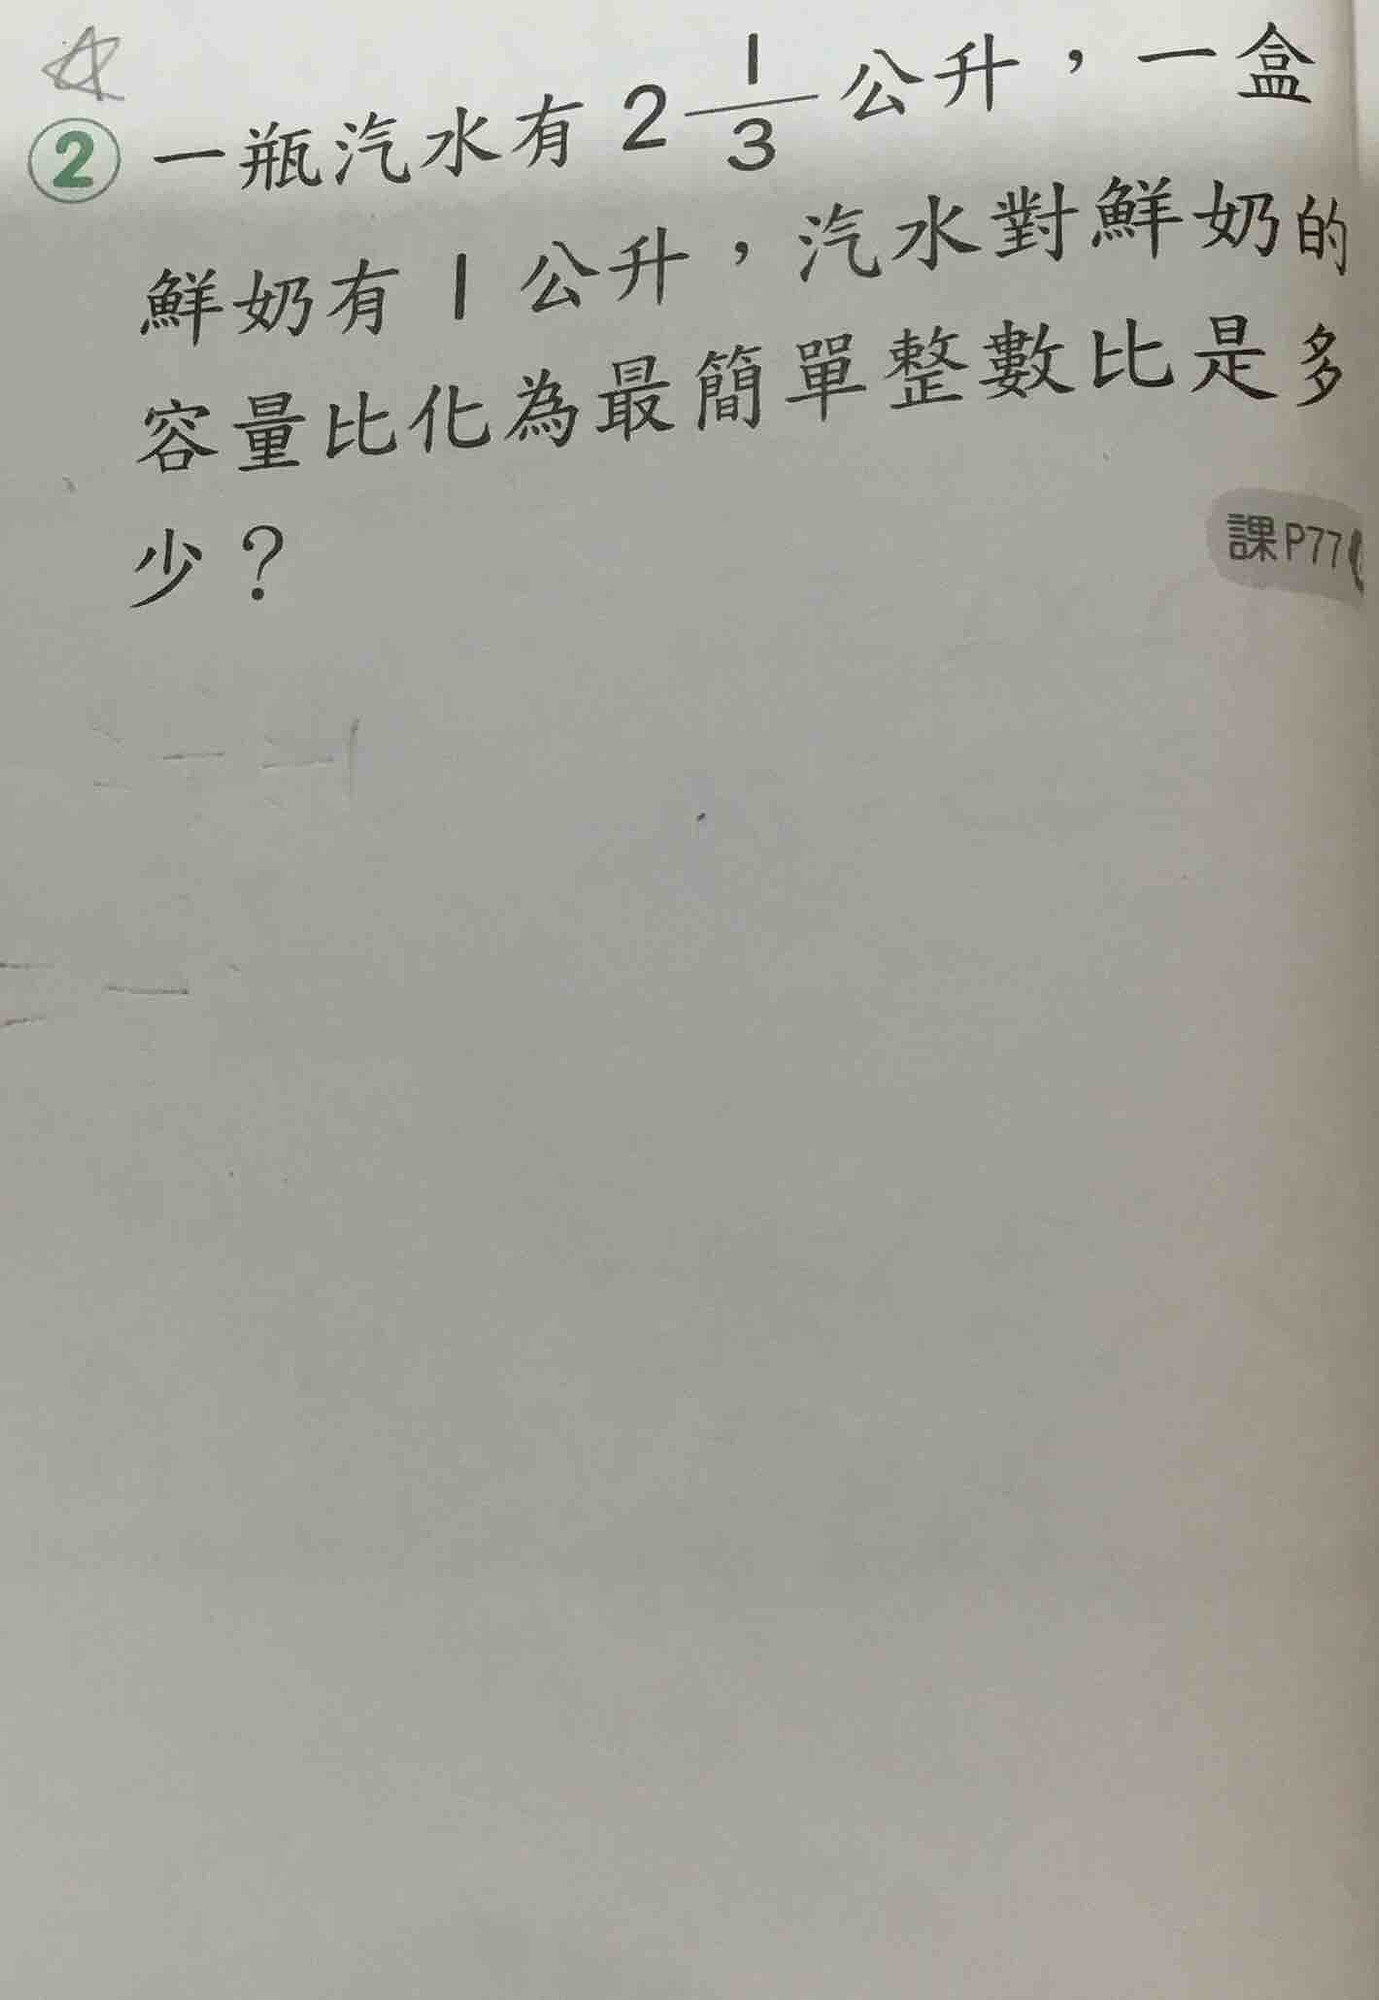 ② 一瓶汽水有 2 1/3 公升，一盒
鮮奶有 1 公升，汽水對鮮奶的
容量比化為最簡單整數比是多
少？
課P77